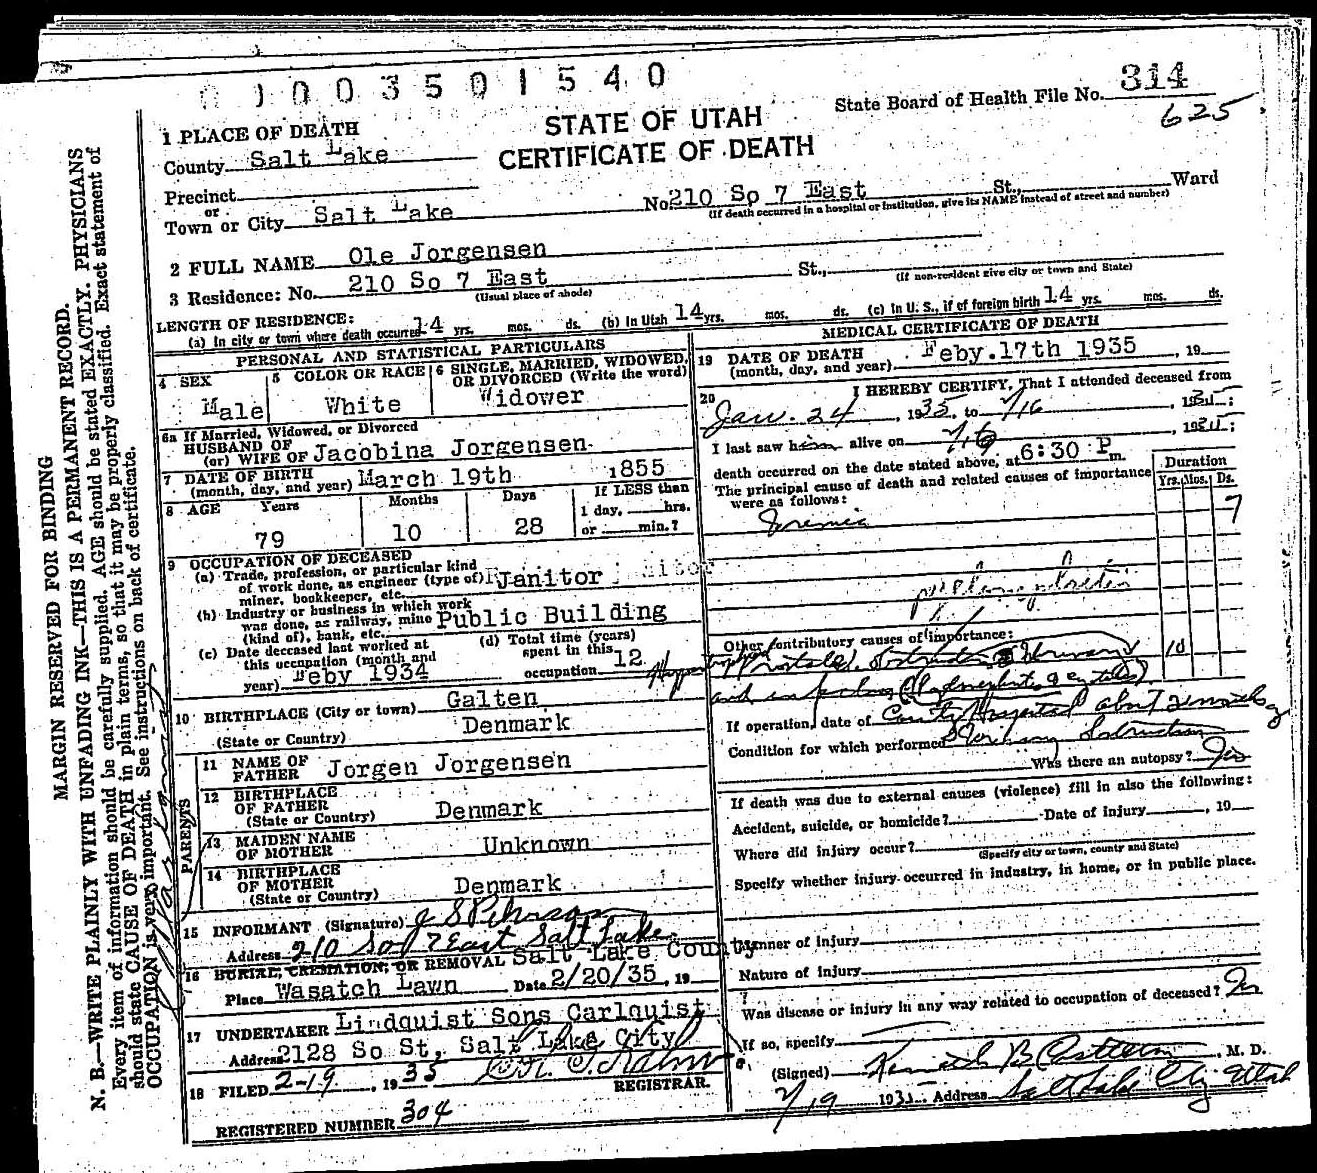 0 1 0 0 3 5 0 1 5 4 0
State Board of Health File No. 314
625
STATE OF UTAH
CERTIFICATE OF DEATH
1 PLACE OF DEATH
County Salt Lake
Precinct
or
Town or City Salt Lake No 210 So 7 East St., Ward
(If death occurred in a hospital or institution, give its NAME instead of street and number)
2 FULL NAME Ole Jorgensen
3 Residence: No. 210 So 7 East St.,
(Usual place of abode) (If non-resident give city or town and State)
LENGTH OF RESIDENCE:
(a) In city or town where death occurred 14 yrs. mos. ds. (b) In Utah 14 yrs. mos. ds. (c) In U. S., if of foreign birth 14 yrs. mos. ds.
PERSONAL AND STATISTICAL PARTICULARS
4 SEX Male
5 COLOR OR RACE White
6 SINGLE, MARRIED, WIDOWED, OR DIVORCED (Write the word) Widower
6a If Married, Widowed, or Divorced
HUSBAND OF
(or) WIFE OF Jacobina Jorgensen
7 DATE OF BIRTH
(month, day, and year) March 19th 1855
8 AGE Years Months Days If LESS than
1 day, hrs.
79 10 28 or min.?
9 OCCUPATION OF DECEASED
(a) Trade, profession, or particular kind
of work done, as engineer (type of) Janitor
miner, bookkeeper, etc.
(b) Industry or business in which work
was done, as railway, mine Public Building
(kind of), bank, etc.
(c) Date deceased last worked at
this occupation (month and
year) Feby 1934
(d) Total time (years)
spent in this
occupation 12
10 BIRTHPLACE (City or town) Galten
(State or Country) Denmark
PARENTS
11 NAME OF
FATHER Jorgen Jorgensen
12 BIRTHPLACE
OF FATHER
(State or Country) Denmark
13 MAIDEN NAME
OF MOTHER Unknown
14 BIRTHPLACE
OF MOTHER
(State or Country) Denmark
15 INFORMANT (Signature)
Address 210 So 7 East Salt Lake
16 BURIAL, CREMATION, OR REMOVAL Salt Lake County
Place Wasatch Lawn Date 2/20/35, 19
17 UNDERTAKER Lindquist Sons Carlquist
Address 2128 So St, Salt Lake City
18 FILED 2-19, 1935
REGISTRAR.
REGISTERED NUMBER 304
MEDICAL CERTIFICATE OF DEATH
19 DATE OF DEATH
(month, day, and year) Feby. 17th 1935, 19
20 I HEREBY CERTIFY, That I attended deceased from
Jan. 24, 1935, to 2/16, 193
I last saw him alive on 2/16, 193
death occurred on the date stated above, at 6:30 P m.
The principal cause of death and related causes of importance
were as follows:
Duration
Yrs. Mos. Ds.
Uremia 7
Other contributory causes of importance:
10
If operation, date of County Hospital about 2 months
Condition for which performed
Was there an autopsy?
If death was due to external causes (violence) fill in also the following:
Accident, suicide, or homicide? Date of injury, 19
Where did injury occur?
(Specify city or town, county and State)
Specify whether injury occurred in industry, in home, or in public place.
Manner of injury
Nature of injury
Was disease or injury in any way related to occupation of deceased?
If so, specify
(Signed) Kenneth B , M. D.
2/19 1935 Address Salt Lake City Utah
MARGIN RESERVED FOR BINDING
N. B.—WRITE PLAINLY WITH UNFADING INK—THIS IS A PERMANENT RECORD.
Every item of information should be carefully supplied. AGE should be stated EXACTLY. PHYSICIANS
should state CAUSE OF DEATH in plain terms, so that it may be properly classified. Exact statement of
OCCUPATION is very important. See instructions on back of certificate.